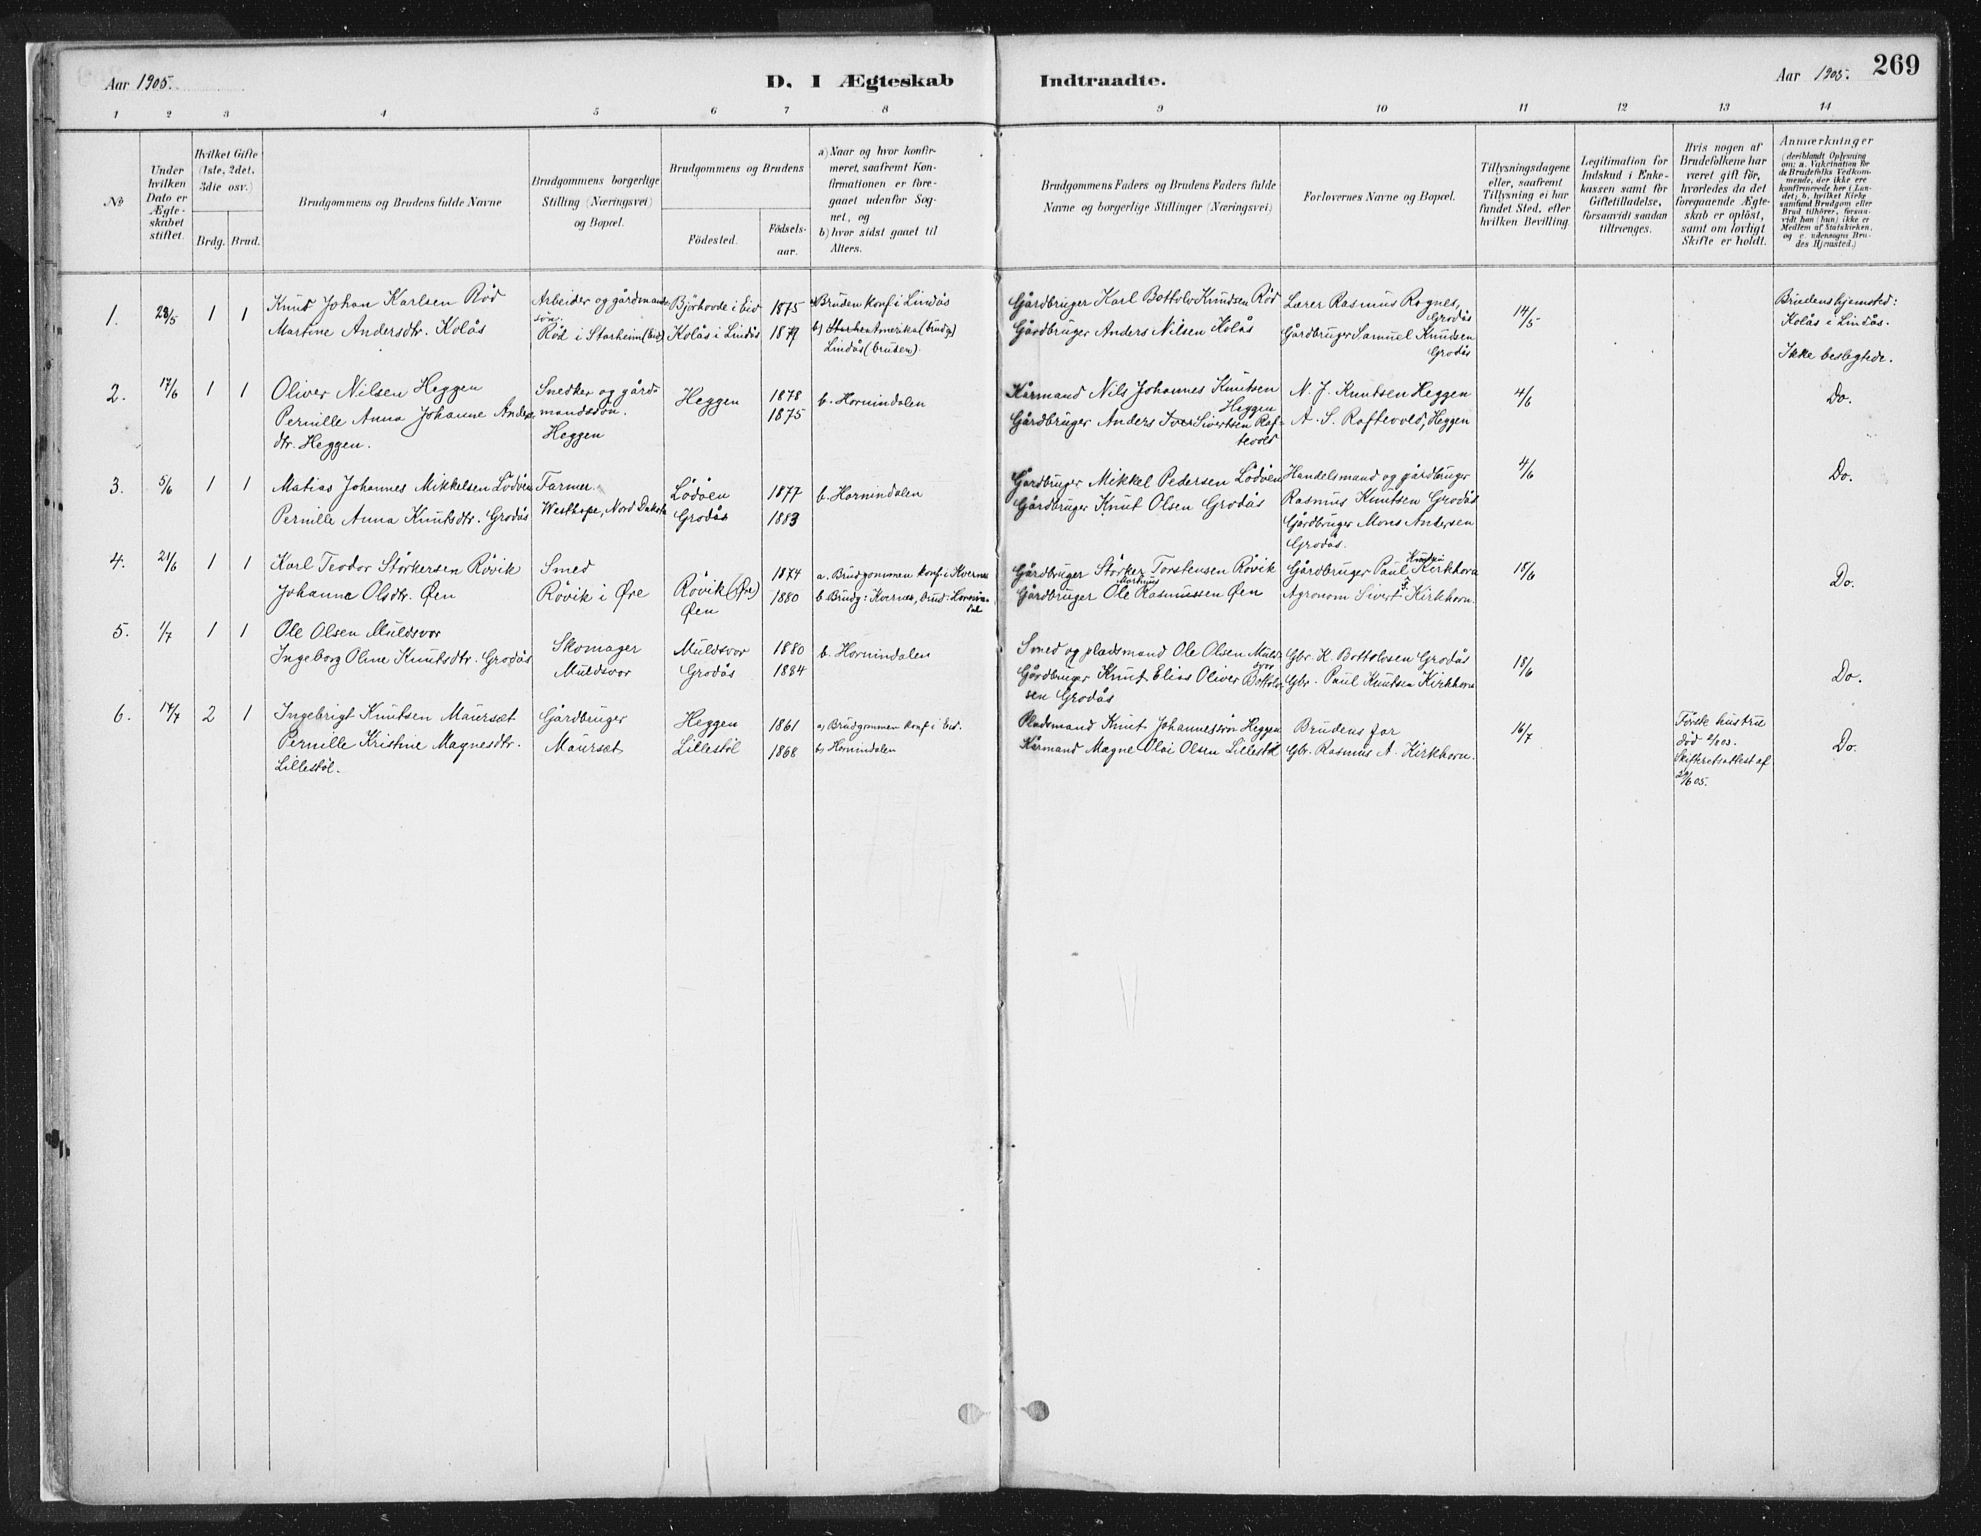 Aar 1905.
D. I Ægteskab
Indtraadte.
Aar 1905.
269
1 2 3 4 5 6 7 8 9 10 11 12 13 14
No
Under hvilken Dato er Ægteskabet stiftet.
Hvilket Gifte (1ste, 2det, 3die osv.)
Brdg. Brud.
Brudgommens og Brudens fulde Navne
Brudgommens borgerlige Stilling (Næringsvei) og Bopæl.
Brudgommens og Brudens
Fødested.
Fødselsaar.
a) Naar og hvor konfirmeret, saafremt Konfirmationen er foregaaet udenfor Sognet, og
b) hvor sidst gaaet til Alters.
Brudgommens Faders og Brudens Faders fulde Navne og borgerlige Stillinger (Næringsvei)
Forlovernes Navne og Bopæl.
Tillysningsdagene eller, saafremt Tillysning ei har fundet Sted, efter hvilken Bevilling.
Legitimation for Indskud i Enkekassen samt for Giftetilladelse, forsaavidt saadan tiltrænges.
Hvis nogen af Brudefolkene har været gift før, hvorledes da det foregaaende Ægteskab er opløst, samt om lovligt Skifte er holdt.
Anmærkninger (deriblandt Oplysning om: a. Vakcination for de Brudefolks Vedkommende, der ikke ere konfirmerede her i Landet; b. hvilket Kirkesamfund Brudgom eller Brud tilhører, forsaavidt han (hun) ikke er Medlem af Statskirken, og c. udensogns Brudes Hjemsted.)
1. 28/5 1 1
Knut Johan Karlsen Rød
Martine Andersdtr. Kolås
Arbeider og gårdmands
søn.
Rød i Starheim (Eid)
Bjørhovde i Eid
Kolås i Lindås
1875
1879
a) Bruden konf. i Lindås
b) Amerika (brudg)
Lindås (bruden).
Gårdbruger Karl Bottolv Knudsen Rød
Gårdbruger Anders Nilsen Kolås
Lærer Rasmus Rognes,
Grodås
Gårdbruger Samuel Knudsen
Grodås
14/5
Brudens hjemsted:
Kolås i Lindås.
Ikke beslegtede.
2. 17/6 1 1
Oliver Nilsen Heggen
Pernille Anna Johanne Anders
dtr. Heggen.
Snedker og gård
mandssøn.
Heggen
Heggen
1878
1875
b. Hornindalen
Kårmand Nils Johannes Knutsen
Heggen
Gårdbruger Anders Sivertsen Raf-
tevold
N. J. Knutsen Heggen
A. S. Raftevold, Heggen
4/6
Do.
3. 5/6 1 1
Matias Johannes Mikkelsen Lødøen
Pernille Anna Knutsdtr. Grodås
Farmer.
Westhope, Nord Dakota
Lødøen
Grodås
1877
1883
b. Hornindalen
Gårdbruger Mikkel Pedersen Lødøen
Gårdbruger Knut Olsen Grodås
Handelsmand og gårdbruger
Rasmus Knutsen Grodås
Gårdbruger Mons Andersen
Grodås.
4/6
Do.
4. 21/6 1 1
Karl Teodor Størkersen Røvik
Johanna Olsdtr. Øen
Smed
Røvik i Øre
Røvik (Øre)
Øen
1874
1880
a. Brudgommen konf. i Kvernes
b. Brudg: Kvernes, brud: Hornin-
dal
Gårdbruger Størker Torstensen Røvik
Gårdbruger Ole Rasmussen Øen
Gårdbruger Paul Knutsen Kirkhorn
Agronom Sivert Kirkhorn.
18/6
Do.
5. 1/7 1 1
Ole Olsen Muldsvor
Ingeborg Oline Knutsdtr. Grodås
Skomager
Muldsvor
Muldsvor
Grodås
1880
1884
b. Hornindalen
Smed og pladsmand Ole Olsen Muld-
svor
Gårdbruger Knut Elias Oliver Bottolv-
sen Grodås
Gbr. K. Bottolvsen Grodås
Gbr. Paul Knutsen Kirkhorn
18/6
Do.
6. 17/7 2 1
Ingebrigt Knutsen Maursæt
Pernille Kristine Magnesdtr.
Lillestøl.
Gårdbruger
Maursæt
Heggen
Lillestøl
1861
1868
a) Brudgommen konf. i Eid.
b) Hornindalen
Pladsmand Knut Johannessøn Heggen
Kårmand Magne Olai Olsen Lillestøl
Brudens far
Gbr. Rasmus A. Kirkhorn.
16/7
Første hustru
død 2/1 03.
Skifteretsattest af
29/6 05.
Do.